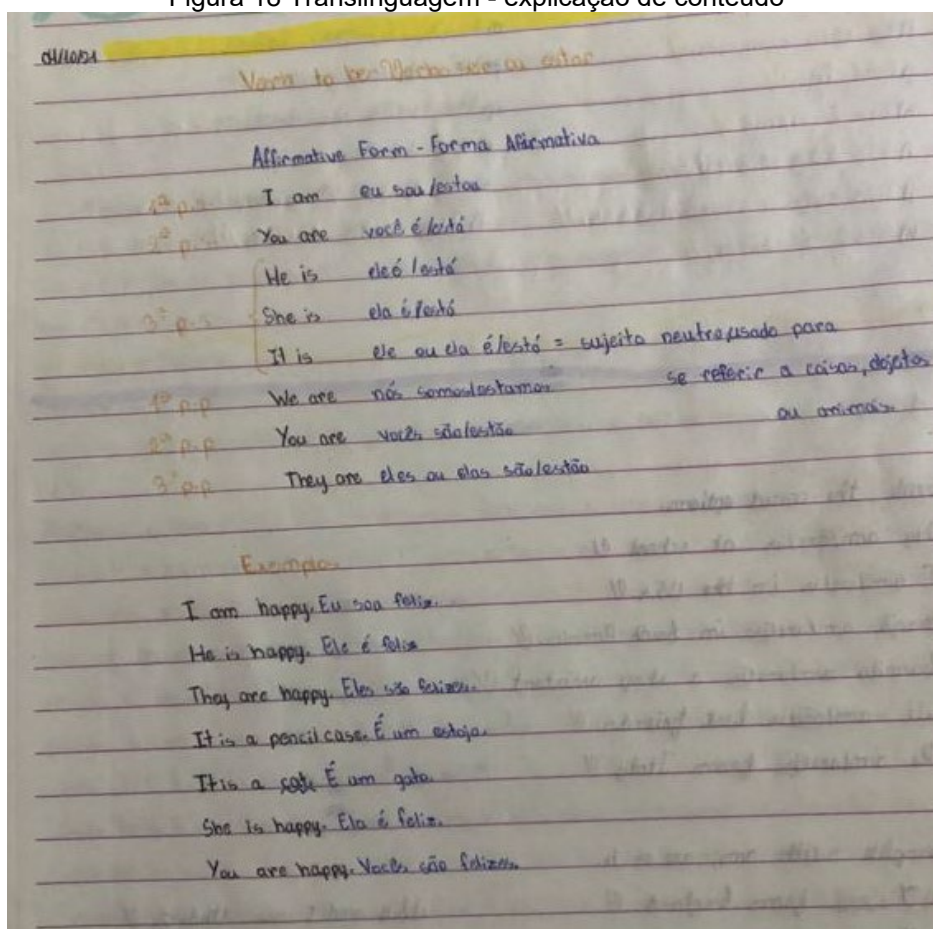 Figura 18 Translinguagem - explicação de conteúdo
Verb to be - Verbo ser ou estar
Affirmative Form - Forma Afirmativa
1ª p.s I am eu sou/estou
2ª p.s You are você é/está
He is ele é/está
3ª p.s She is ela é/está
It is ele ou ela é/está = sujeito neutro, usado para
se referir a coisas, objetos
ou animais.
1ª p.p We are nós somos/estamos
2ª p.p You are vocês são/estão
3ª p.p They are eles ou elas são/estão
Exemplos
I am happy. Eu sou feliz.
He is happy. Ele é feliz
They are happy. Eles são felizes.
It is a pencil case. É um estojo.
It is a É um gato.
She is happy. Ela é feliz.
You are happy. Vocês são felizes.